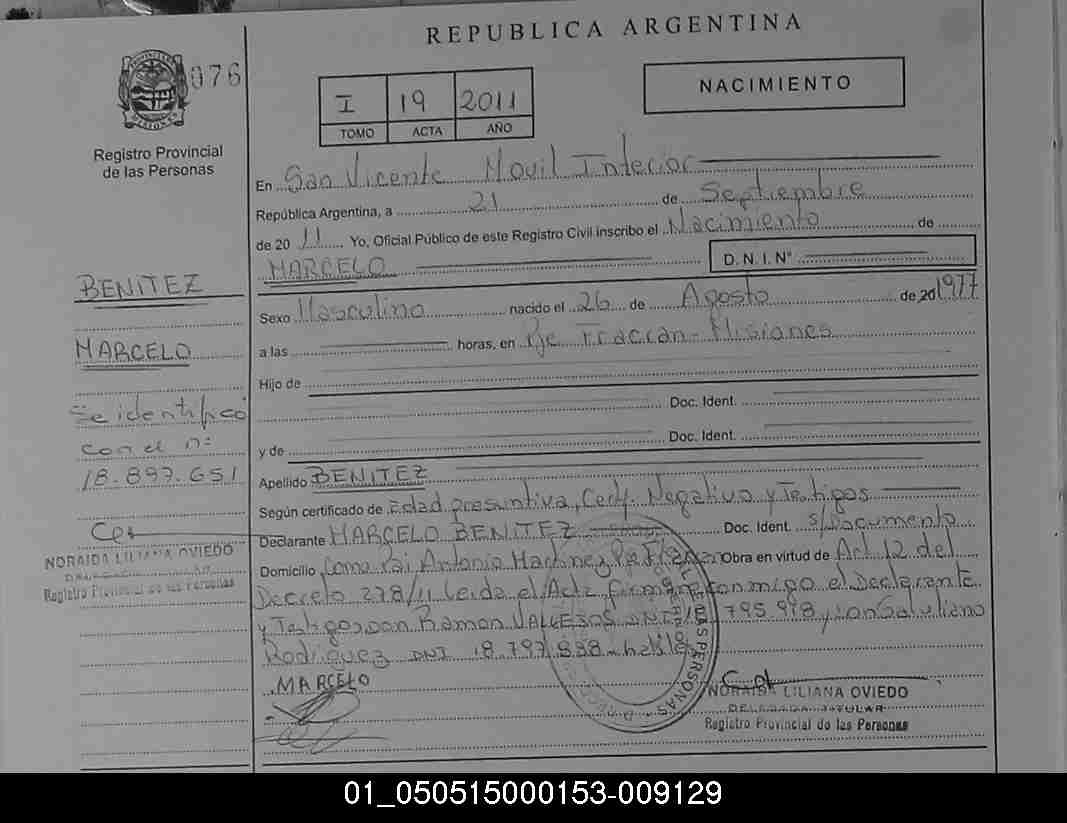 REPUBLICA ARGENTINA
076
I 19 2011
TOMO ACTA AÑO
NACIMIENTO
Registro Provincial
de las Personas
En San Vicente Movil Interior
República Argentina, a 21 de Septiembre
de 20 11 Yo, Oficial Público de este Registro Civil inscribo el Nacimiento de
MARCELO D.N.I. N°
Sexo Masculino nacido el 26 de Agosto de 20 1977
a las horas, en Pje Fracran - Misiones
Hijo de
Doc. Ident.
y de Doc. Ident.
Apellido BENITEZ
Según certificado de Edad presuntiva, Cert. Negativo y Testigos
Declarante MARCELO BENITEZ Doc. Ident. s/Documento
Domicilio Com. Pai Antonio Martinez Pje Fracran Obra en virtud de Art 12 del
Decreto 278/11 Leida el Acta Firma conmigo el Declarante
y Testigos Don Ramon VALLEJOS DNI 18.795.978 y Don
Rodriguez DNI 18.797.838
MARCELO
BENITEZ
MARCELO
Se identificó
con el nº
18.897.651
NORAIDA LILIANA OVIEDO
Registro Provincial de las Personas
NORAIDA LILIANA OVIEDO
DELEGADA TITULAR
Registro Provincial de las Personas
01_050515000153-009129